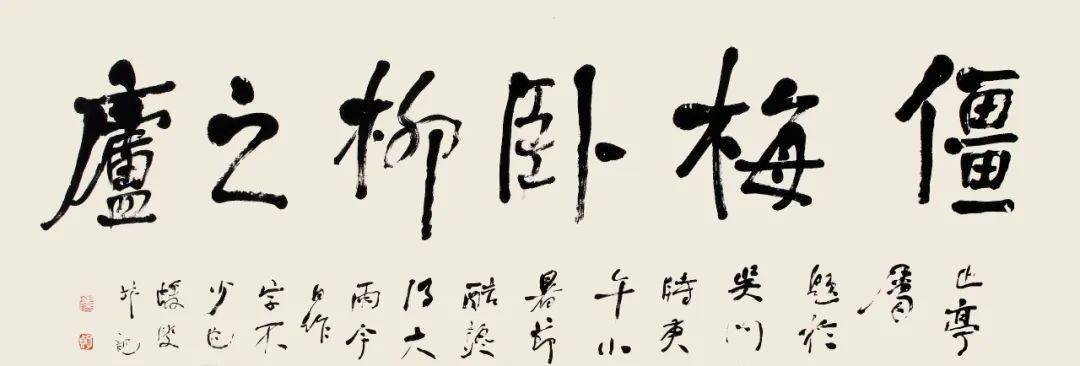 僵梅卧柳之廬
止亭
屬
題於
吳門
時庚
午小
暑節
酷
得大
雨今
日作
字不
少
并記